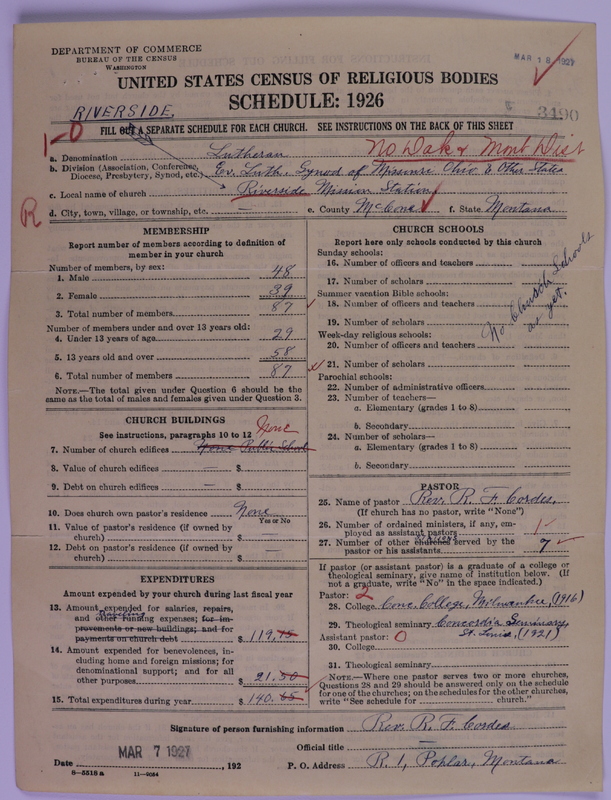 DEPARTMENT OF COMMERCE
BUREAU OF THE CENSUS
WASHINGTON
MAR 18 1927
UNITED STATES CENSUS OF RELIGIOUS BODIES
SCHEDULE: 1926
3490
RIVERSIDE.
1-0
FILL OUT A SEPARATE SCHEDULE FOR EACH CHURCH. SEE INSTRUCTIONS ON THE BACK OF THIS SHEET
No Dak & Mont Dist
a. Denomination Lutheran
b. Division (Association, Conference, Diocese, Presbytery, Synod, etc.) Ev. Luth. Synod of Missouri Ohio & Other States
c. Local name of church Riverside Mission Station
R
d. City, town, village, or township, etc. e. County McCone f. State Montana
MEMBERSHIP
Report number of members according to definition of
member in your church
Number of members, by sex:
1. Male 48
2. Female 39
3. Total number of members 87
Number of members under and over 13 years old:
4. Under 13 years of age 29
5. 13 years old and over 58
6. Total number of members 87
NOTE.—The total given under Question 6 should be the
same as the total of males and females given under Question 3.
CHURCH BUILDINGS
See instructions, paragraphs 10 to 12 None
7. Number of church edifices None Public School
8. Value of church edifices — $
9. Debt on church edifices — $
10. Does church own pastor's residence None
Yes or No
11. Value of pastor's residence (if owned by
church) $ —
12. Debt on pastor's residence (if owned by
church) $ —
EXPENDITURES
Amount expended by your church during last fiscal year
13. Amount expended for salaries, repairs,
and other running expenses; for im-
provements or new buildings; and for
payments on church debt $ 119.15
14. Amount expended for benevolences, in-
cluding home and foreign missions; for
denominational support; and for all
other purposes $ 21.50
15. Total expenditures during year $ 140.65
CHURCH SCHOOLS
Report here only schools conducted by this church
Sunday schools:
16. Number of officers and teachers
17. Number of scholars
Summer vacation Bible schools:
18. Number of officers and teachers
19. Number of scholars
Week-day religious schools:
20. Number of officers and teachers
21. Number of scholars
No Church Schools
as yet.
Parochial schools:
22. Number of administrative officers
23. Number of teachers—
a. Elementary (grades 1 to 8)
b. Secondary
24. Number of scholars—
a. Elementary (grades 1 to 8)
b. Secondary
PASTOR
25. Name of pastor Rev. R. F. Cordes.
(If church has no pastor, write "None")
26. Number of ordained ministers, if any, em-
ployed as assistant pastors 1-
27. Number of other churches served by the
pastor or his assistants 7
If pastor (or assistant pastor) is a graduate of a college or
theological seminary, give name of institution below. (If
not a graduate, write "No" in the space indicated.)
Pastor: 2
28. College Conc. College, Milwaukee, (1916)
29. Theological seminary Concordia Seminary,
St. Louis, (1921)
Assistant pastor: 0
30. College
31. Theological seminary
NOTE.—Where one pastor serves two or more churches,
Questions 28 and 29 should be answered only on the schedule
for one of the churches; on the schedules for the other churches,
write "See schedule for church."
Signature of person furnishing information Rev. R. F. Cordes
Official title
MAR 7 1927
Date , 192 P. O. Address R. 1, Poplar, Montana
8—5518 a 11—9084